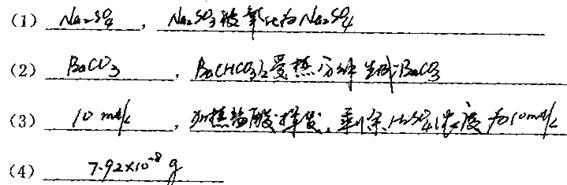 (1) Na₂SO₄, Na₂SO₃被氧化为Na₂SO₄
(2) BaCO₃, Ba(HCO₃)₂受热分解生成BaCO₃
(3) 10 mol/L, 加热盐酸挥发, 剩余H₂SO₄浓度为10mol/L
(4) 7.92×10⁻⁸ g